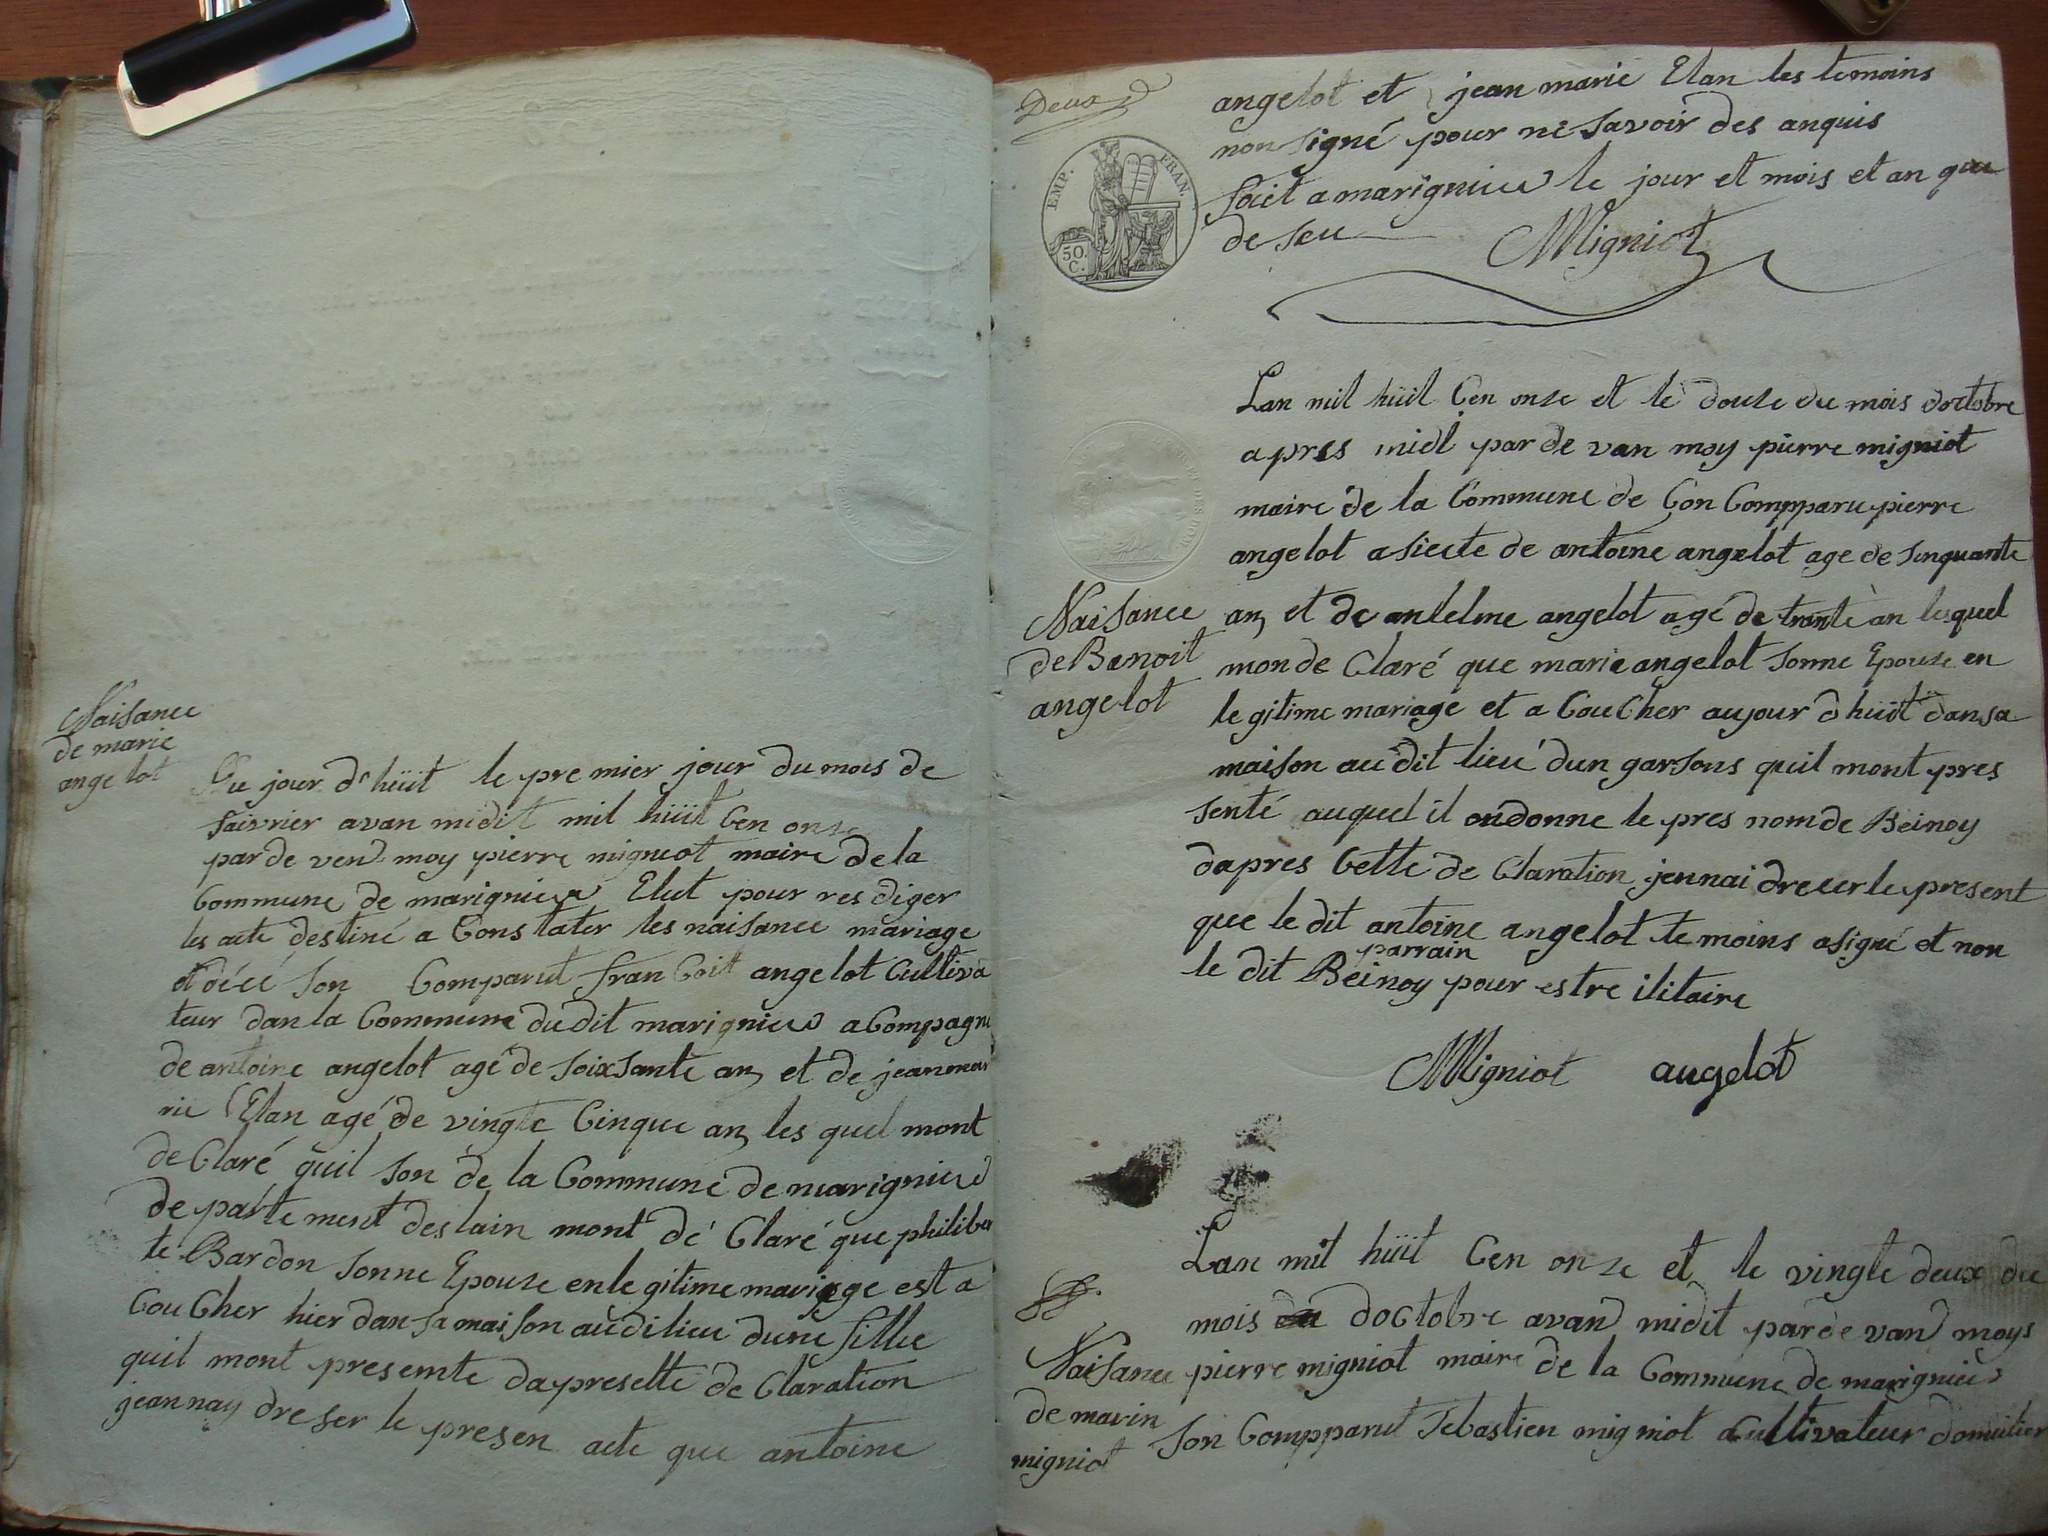 Naisance
de marie
angelot
Du jour d'hüit le premier jour du mois de
faivrier avan midit mil hüit Cen onze
par de vend moy pierre migniot maire de la
Commune de marignieu Elut pour res diger
les acte destiné a Constater les naisance mariage
et décé son Comparut franCoit angelot Cultiva
teur dan la Commune dudit marignieu a Compagni
de antoine angelot agé de soixsante an et de jeanma
rie Elan agé de vingte Cinque an les quel mont
de Claré quil son de la Commune de marignieu
de parte ment deslain mont dé Claré que philiber
te Bardon sonne Epouze en le gitime mariage est a
CouCher hier dan sa maison audi lieu dune fille
quil mont presente dapresette de Claration
jeannay dreser le presen acte que antoine
Deux
angelot et jean marie Elan les temoins
non signé pour ne savoir des anquis
fait a marignieu le jour et mois et an que
de seu Migniot
EMP. FRAN.
50. C.
Lan mil hüit Cen onze et le douze du mois doctobre
apres midt par de van moy pierre migniot
maire de la Commune de Con Compparu pierre
angelot asiecte de antoine angelot age de sinquante
Naisance
de Benoit
angelot
an et de antelme angelot agé de trante an lesquel
mon de Claré que marie angelot sonne Epouze en
le gitime mariage et a CouCher aujour d hüit dansa
maison au dit lieu dun garsons quil mont pres
senté auquel il ondonne le pres nom de Beinoy
dapres Cette de Claration jennai dreser le present
que le dit antoine angelot temoins a signé et non
parrain
le dit Beinoy pour estre ilitaire
Migniot angelot
Lan mil hüit Cen onze et le vingte deux du
mois doctobre avand midit par de vand moys
Naisance
de marin
migniot
pierre migniot maire de la Commune de marignieu
son Compparut Sebastien migniot Cultivateur domicilier